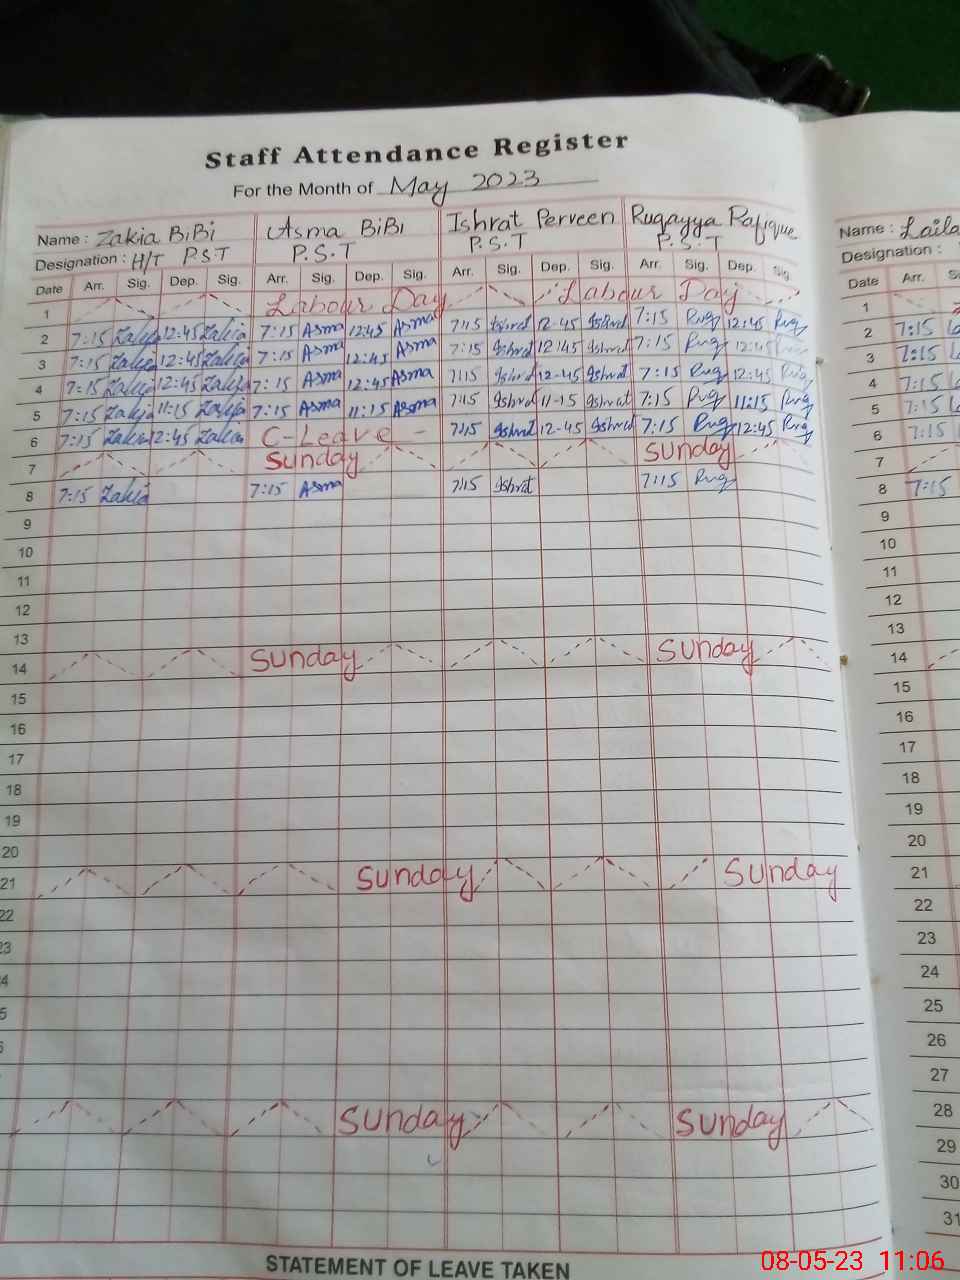 Staff Attendance Register
For the Month of May 2023
Name : Zakia BiBi Asma BiBi Ishrat Perveen Ruqayya Rafique Name : Laila
Designation : H/T P.S.T P.S.T P.S.T P.S.T Designation :
Date Arr. Sig. Dep. Sig. Arr. Sig. Dep. Sig. Arr. Sig. Dep. Sig. Arr. Sig. Dep. Sig. Date Arr.
1 Labour Day Labour Day 1
2 7:15 Zakia 12:45 Zakia 7:15 Asma 12:45 Asma 7:15 Ishrat 12-45 Ishrat 7:15 Ruq 12:45 Ruq 2 7:15
3 7:15 Zakia 12:45 Zakia 7:15 Asma 12:45 Asma 7:15 Ishrat 12:45 Ishrat 7:15 Ruq 12:45 Ruq 3 7:15
4 7:15 Zakia 12:45 Zakia 7:15 Asma 12:45 Asma 7:15 Ishrat 12-45 Ishrat 7:15 Ruq 12:45 Ruq 4 7:15
5 7:15 Zakia 11:15 Zakia 7:15 Asma 11:15 Asma 7:15 Ishrat 11-15 Ishrat 7:15 Ruq 11:15 Ruq 5 7:15
6 7:15 Zakia 12:45 Zakia C-Leave - 7:15 Ishrat 12-45 Ishrat 7:15 Ruq 12:45 Ruq 6 7:15
7 Sunday Sunday 7
8 7:15 Zakia 7:15 Asma 7:15 Ishrat 7:15 Ruq 8 7:15
9 9
10 10
11 11
12 12
13 13
14 Sunday Sunday 14
15 15
16 16
17 17
18 18
19 19
20 20
21 Sunday Sunday 21
22 22
23 23
4 24
5 25
26
27
Sunday Sunday 28
29
30
31
STATEMENT OF LEAVE TAKEN
08-05-23 11:06